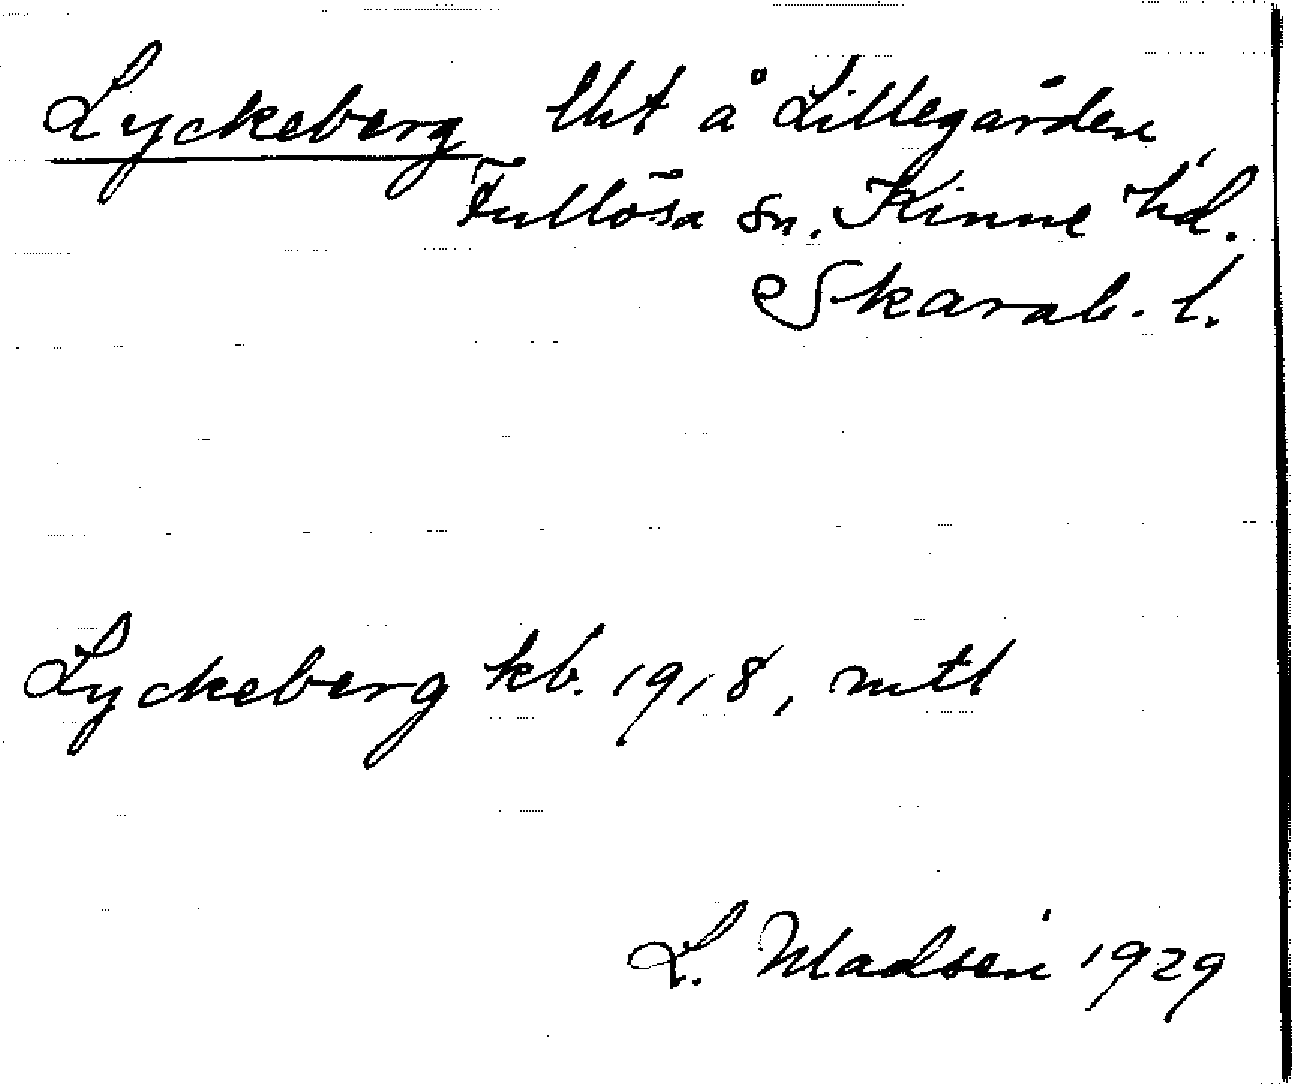 Lyckeberg lht å Lillegården
Fullösa sn. Kinne hd.
Skarab. l.
Lyckeberg kb. 1918, mtl
L. Madsen 1929